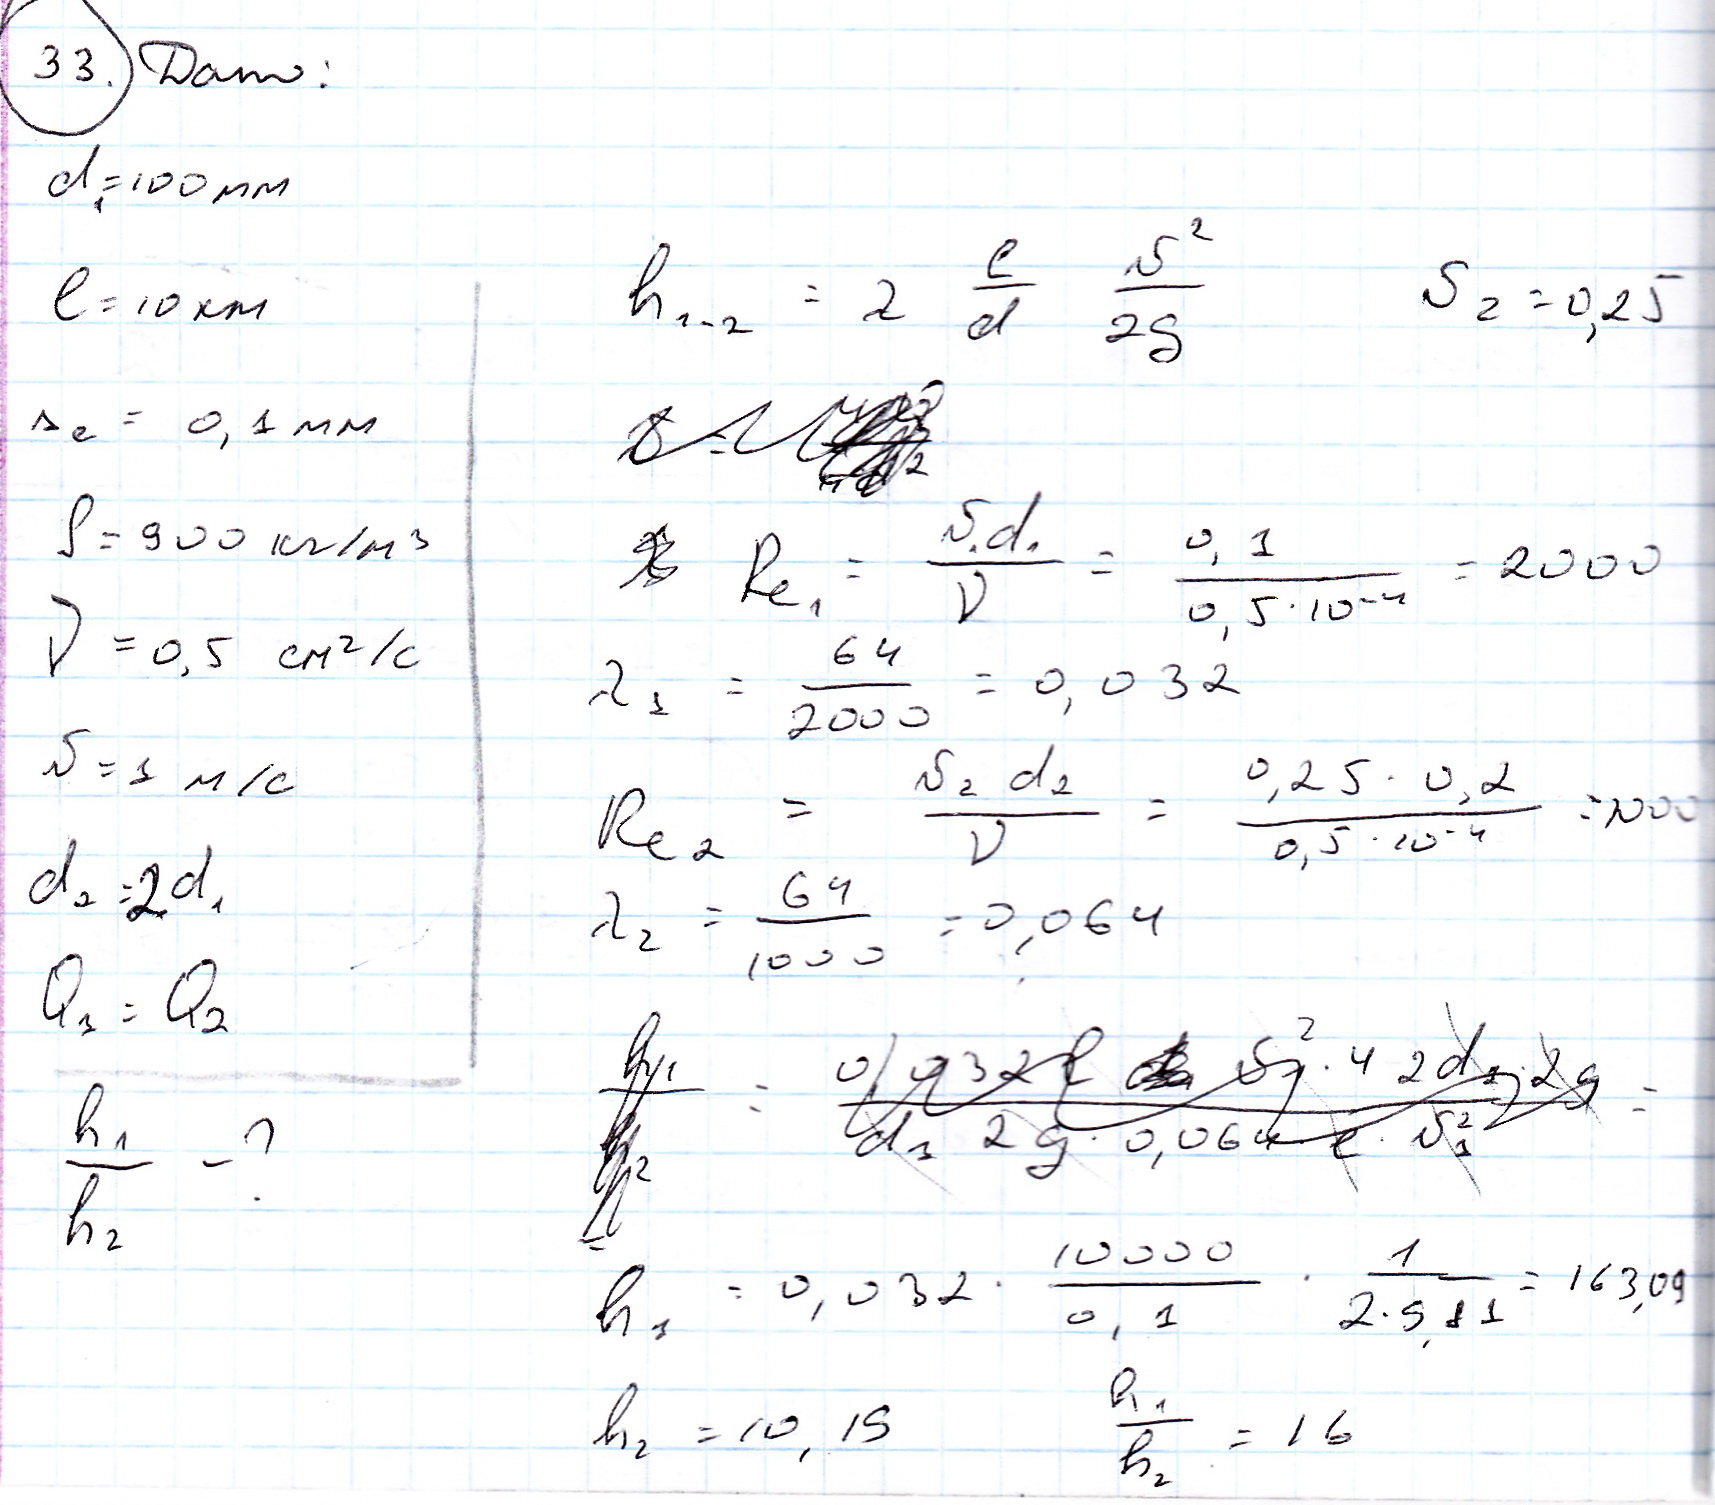 33. Дано:
d₁=100мм
l=10км
Δe= 0,1мм
ρ=900 кг/м³
ν=0,5 см²/с
υ=1 м/с
d₂=2d₁
Q₁=Q₂
h₁/h₂ -?
h₁₋₂ = λ l/d υ²/2g υ₂=0,25
Re₁ = υ₁d₁/ν = 0,1/0,5·10⁻⁴ =2000
λ₁ = 64/2000 = 0,032
Re₂ = υ₂ d₂/ν = 0,25·0,2/0,5·10⁻⁴ =1000
λ₂ = 64/1000 =0,064
h₁ = 0,032·10000/0,1 · 1/2·9,81 = 163,09
h₂ =10,19 h₁/h₂ = 16